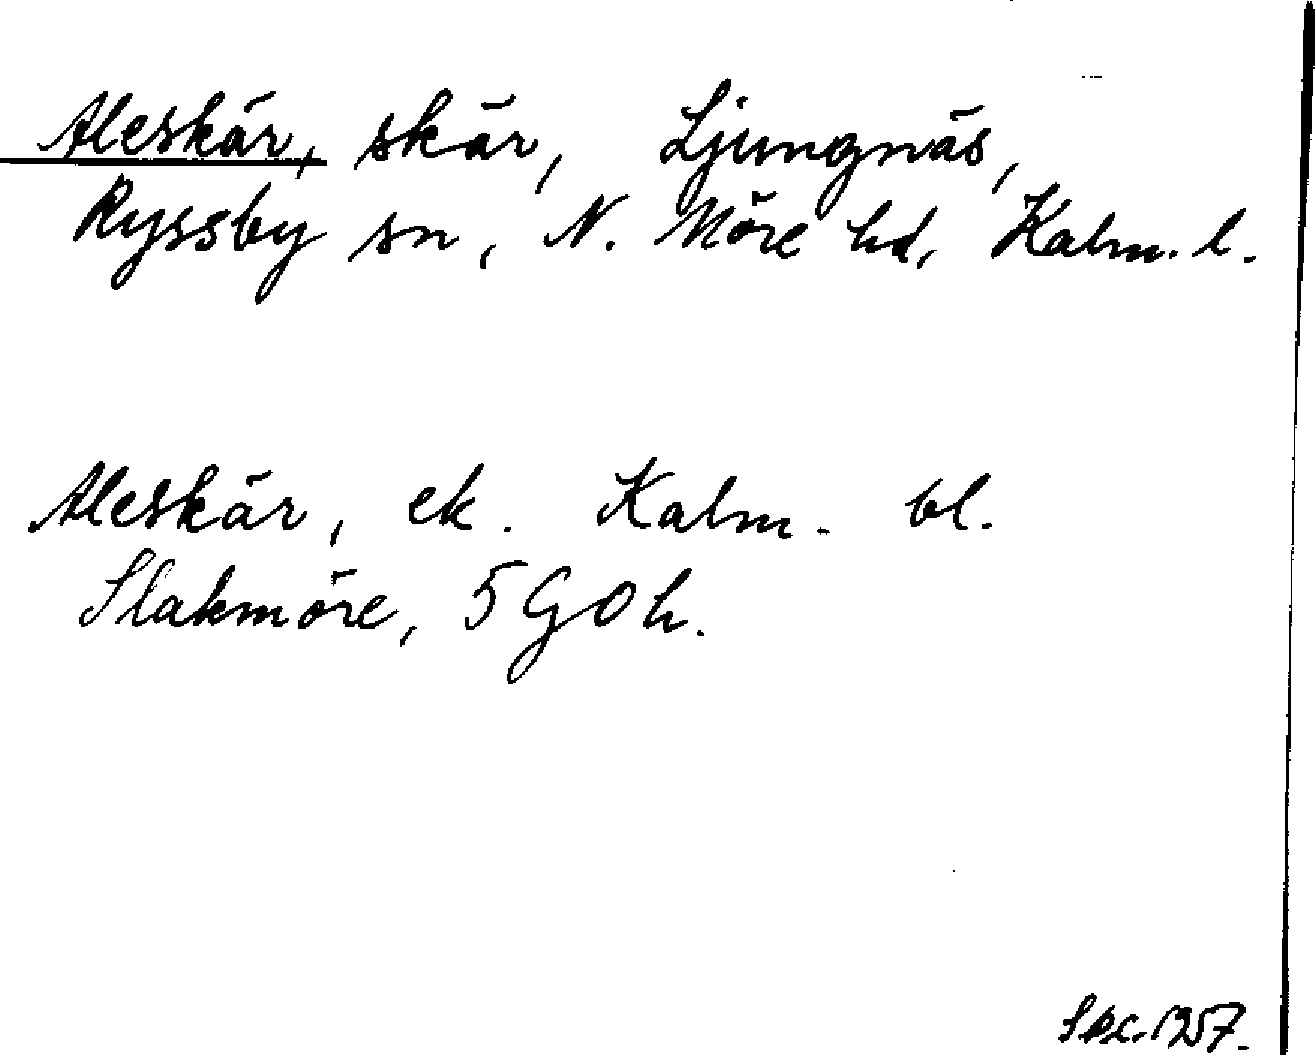 Aleskär, skär, Ljungnäs,
Ryssby sn, N. Möre hd, Kalm. l.
Aleskär, ek. Kalm. bl.
Slakmöre, 5 G O h.
1957.